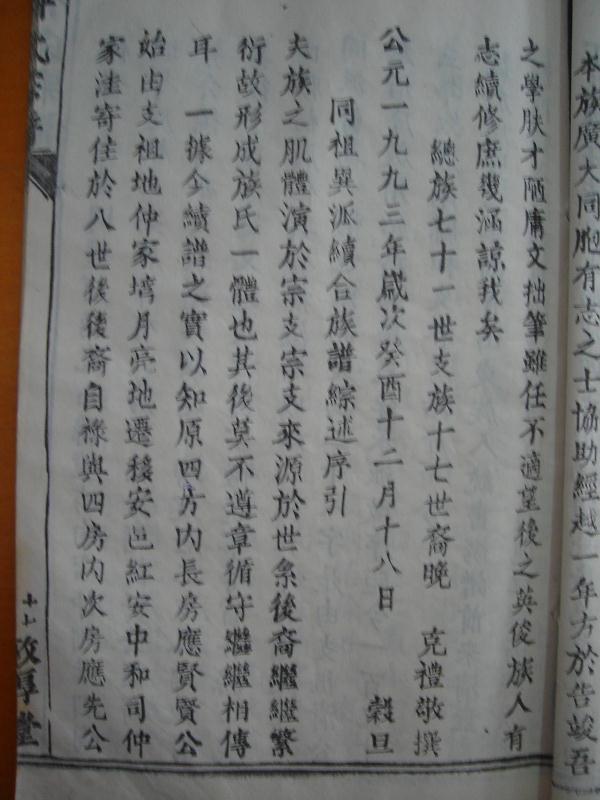 本族廣大同胞有志之士協助經越一年方於告竣吾
之學膚才陋庸文拙筆雖任不適望後之英俊族人有
志續修庶幾涵諒我矣
總族七十一世支族十七世裔晚 克禮敬撰
公元一九九三年歲次癸酉十二月十八日 穀旦
同祖異派續合族譜綜述序引
夫族之肌體演於宗支宗支來源於世系後裔繼繼繁
衍故形成族氏一體也其後莫不遵章循守繼繼相傳
耳 一據今續譜之實以知原四方內長房應賢賢公
始由支祖地仲家塆月亮地遷移安邑紅安中和司仲
家洼寄住於八世後後裔自祿與四房內次房應先公
敦厚堂